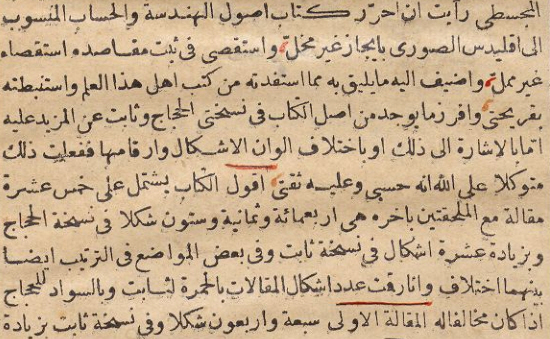 المجسطى رأيت ان احرّر كتاب اصول الهندسة والحساب المنسوب
الى اقليدس الصورى بايجاز غير مخل واستقصى فى ثبت مقاصده استقصاء
غير ممل واضيف اليه ما يليق به مما استفدته من كتب اهل هذا العلم واستنبطته
بقريحتى وافرز ما يوجد من اصل الكتاب فى نسختى الحجاج وثابت عن المزيد عليه
اما بالاشارة الى ذلك او باختلاف الوان الاشكال وارقامها ففعلت ذلك
متوكلا على الله انه حسبى وعليه ثقتى اقول الكتاب يشتمل على خمس عشرة
مقالة مع الملحقتين باخره هى اربعمائة وثمانية وستون شكلا فى نسخة الحجاج
وبزيادة عشرة اشكال فى نسخة ثابت وفى بعض المواضع فى الترتيب ايضا
بينهما اختلاف وانا رقمت عدد اشكال المقالات بالحمرة لثابت وبالسواد للحجاج
اذ كان مخالفا له المقالة الاولى سبعة واربعون شكلا وفى نسخة ثابت بزيادة